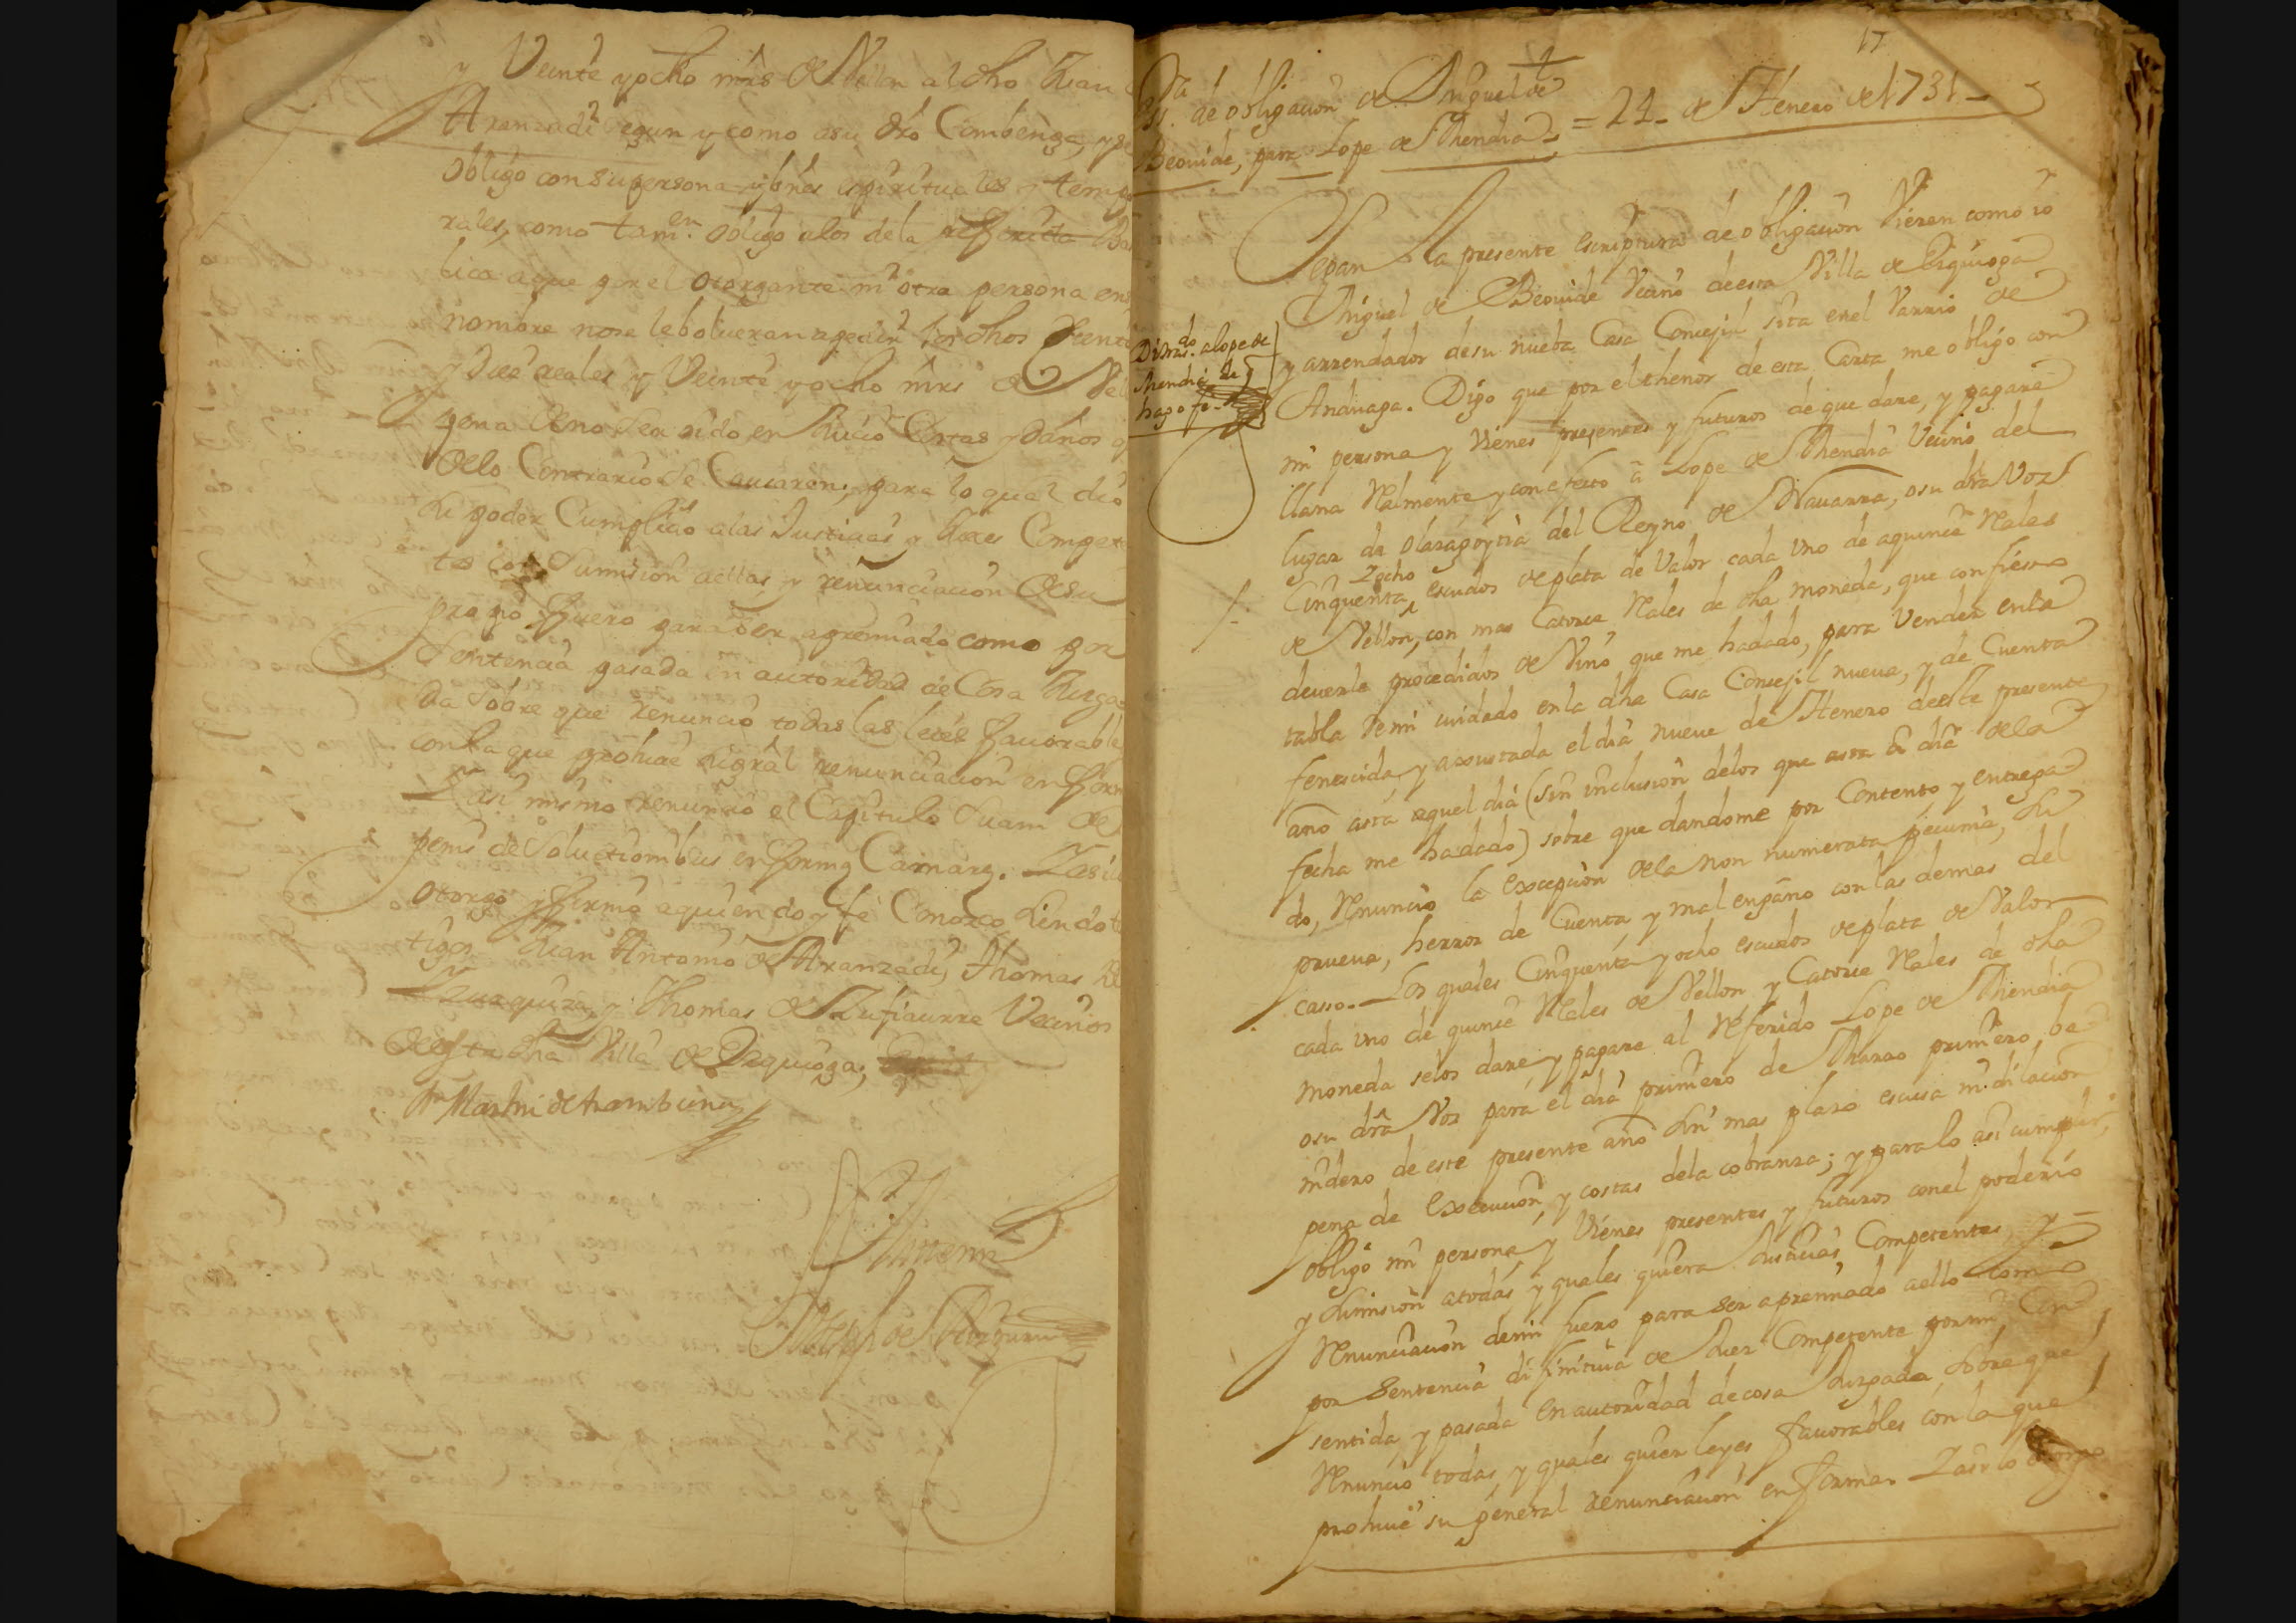 y Veinte y ocho mrs de Vellon al dho Juan
Aranzadi segun y como a su dro Combenga, y se
obligo con su persona y bnes espirituales y tempo
rales, como tamen. obligo a los de la
bica a que por el otorgante ni otra persona en su
nombre no se le bolueran a pedir los dhos Ciento
y Diez reales y Veinte y ocho mrs de Vell
pena de no ser oido en Juicio Costas y Daños q
de lo Contrario se Causaren, para lo qual dio
su poder Cumplido a las Justicias y Jueces Compete
tes con Sumision a ellas, y renunciacion de su
propio fuero para ser apremiado como por
Sentencia pasada en autoridad de Cosa Juzga
da Sobre que renuncio todas las leies fauorables
con la que prohiue su gral renunciacion en forma
Y asi mismo renuncio el Capitulo Suam de
penis de Solutionibus en forma Camarę. Y asi lo
otorgo y firmo a quien doy fe Conozco, siendo tes
tigos Juan Antonio de Aranzadi, Thomas de
Yzuzquiza, y Thomas de Zufiaurre Vecinos
de esta dha Villa de Ezquioga,
Dn Martin de Aramburu
Ante mi
Joseph de
17
Essra. de obligacion de Miguel de
Beouide, para Lope de Mendia = 21 - de Henero de 1731 -
Sepan la presente escriptura de obligacion Vieren como io
Miguel de Beouide Vecino de esta Villa de Ezquioga
y arrendador de su nueba Casa Concejil sita en el Varrio de
Anduaga. Digo que por el thenor de esta Carta me obligo con
mi persona y Vienes presentes y futuros de que dare, y pagare
llana Realmente y con efecto a Lope de Mendia Vecino del
lugar de Olazagoytia del Reyno de Nauarra, o su dra Voz
Cinquenta y ocho escudos de plata de Valor cada Vno de a quince Reales
de Vellon, con mas Catorce Reales de dha moneda, que confieso
deuerle procedidos de Vino que me ha dado, para Vender en la
tabla de mi cuidado en la dha Casa Concejil nueua, y de Cuenta
fenecida, y axustada el dia nueue de Henero de este presente
año asta aquel dia (sin inclusion de los que asta el dia de la
fecha me ha dado) sobre que dandome por Contento y entrega
do, Renuncio la excepcion de la non numerata pecunia, su
prueua, herror de Cuenta, y mal engaño con las demas del
casso. Los quales Cinquenta y ocho escudos de plata de Valor
cada vno de quince Reales de Vellon y Catorce Reales de dha
moneda se los dare y pagare al Referido Lope de Mendia
o su dra Voz para el dia primero de Marzo primero, be
nidero de este presente año sin mas plazo escusa ni dilacion
pena de execucion, y costas de la cobranza; y para lo asi cumplir,
obligo mi persona, y Vienes presentes y futuros con el poderio
y sumision a todas, y quales quiera Justicias Competentes, y =
Renunciacion de mi fuero para ser apremiado a ello como
por Sentencia difinitiua de Juez Competente por mi Con
sentida, y pasada en autoridad de cosa Juzgada, sobre que
Renuncio todas, y quales quier leyes, fauorables con la que
prohiue su general renunciacion en forma. Y asi lo otorgo
Di tras.do a Lope de
Mendia de q
hago fe